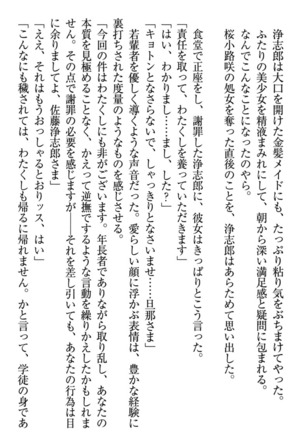 浄志郎は大口を開けた金髪メイドにも、たっぷり粘り気をぶちまけてやった。
ふたりの美少女を精液まみれにして、朝から深い満足感と疑問に包まれる。
なんでこんなことになったのやら。
桜小路咲の処女を奪った直後のことを、浄志郎はあらためて思い出した。

食堂で正座をし、謝罪した浄志郎に、彼女はきっぱりとこう言った。
「責任を取って、わたくしを養っていただきます」
「はい、わかりまし……まし、した?」
「キョトンとなさらないで、しゃっきりとなさいませ……旦那さま」
若輩者を優しく導くような声音だった。愛らしい顔に浮かぶ表情は、豊かな経験に
裏打ちされた度量のようなものを感じさせる。
「今回の件はわたくしにも非がございます。年長者でありながら取り乱し、あなたの
本質を見極めることなく、かえって逆撫でするような言動を繰りかえしたかもしれま
せん。その点で謝罪の必要を感じますが――それを差し引いても、あなたの行為は目
に余りましてよ、佐藤浄志郎さま」
「ええ、それはもうおっしゃるとおりッス、はい」
「こんなにも穢されては、わたくしも帰るに帰れません。かと言って、学徒の身であ